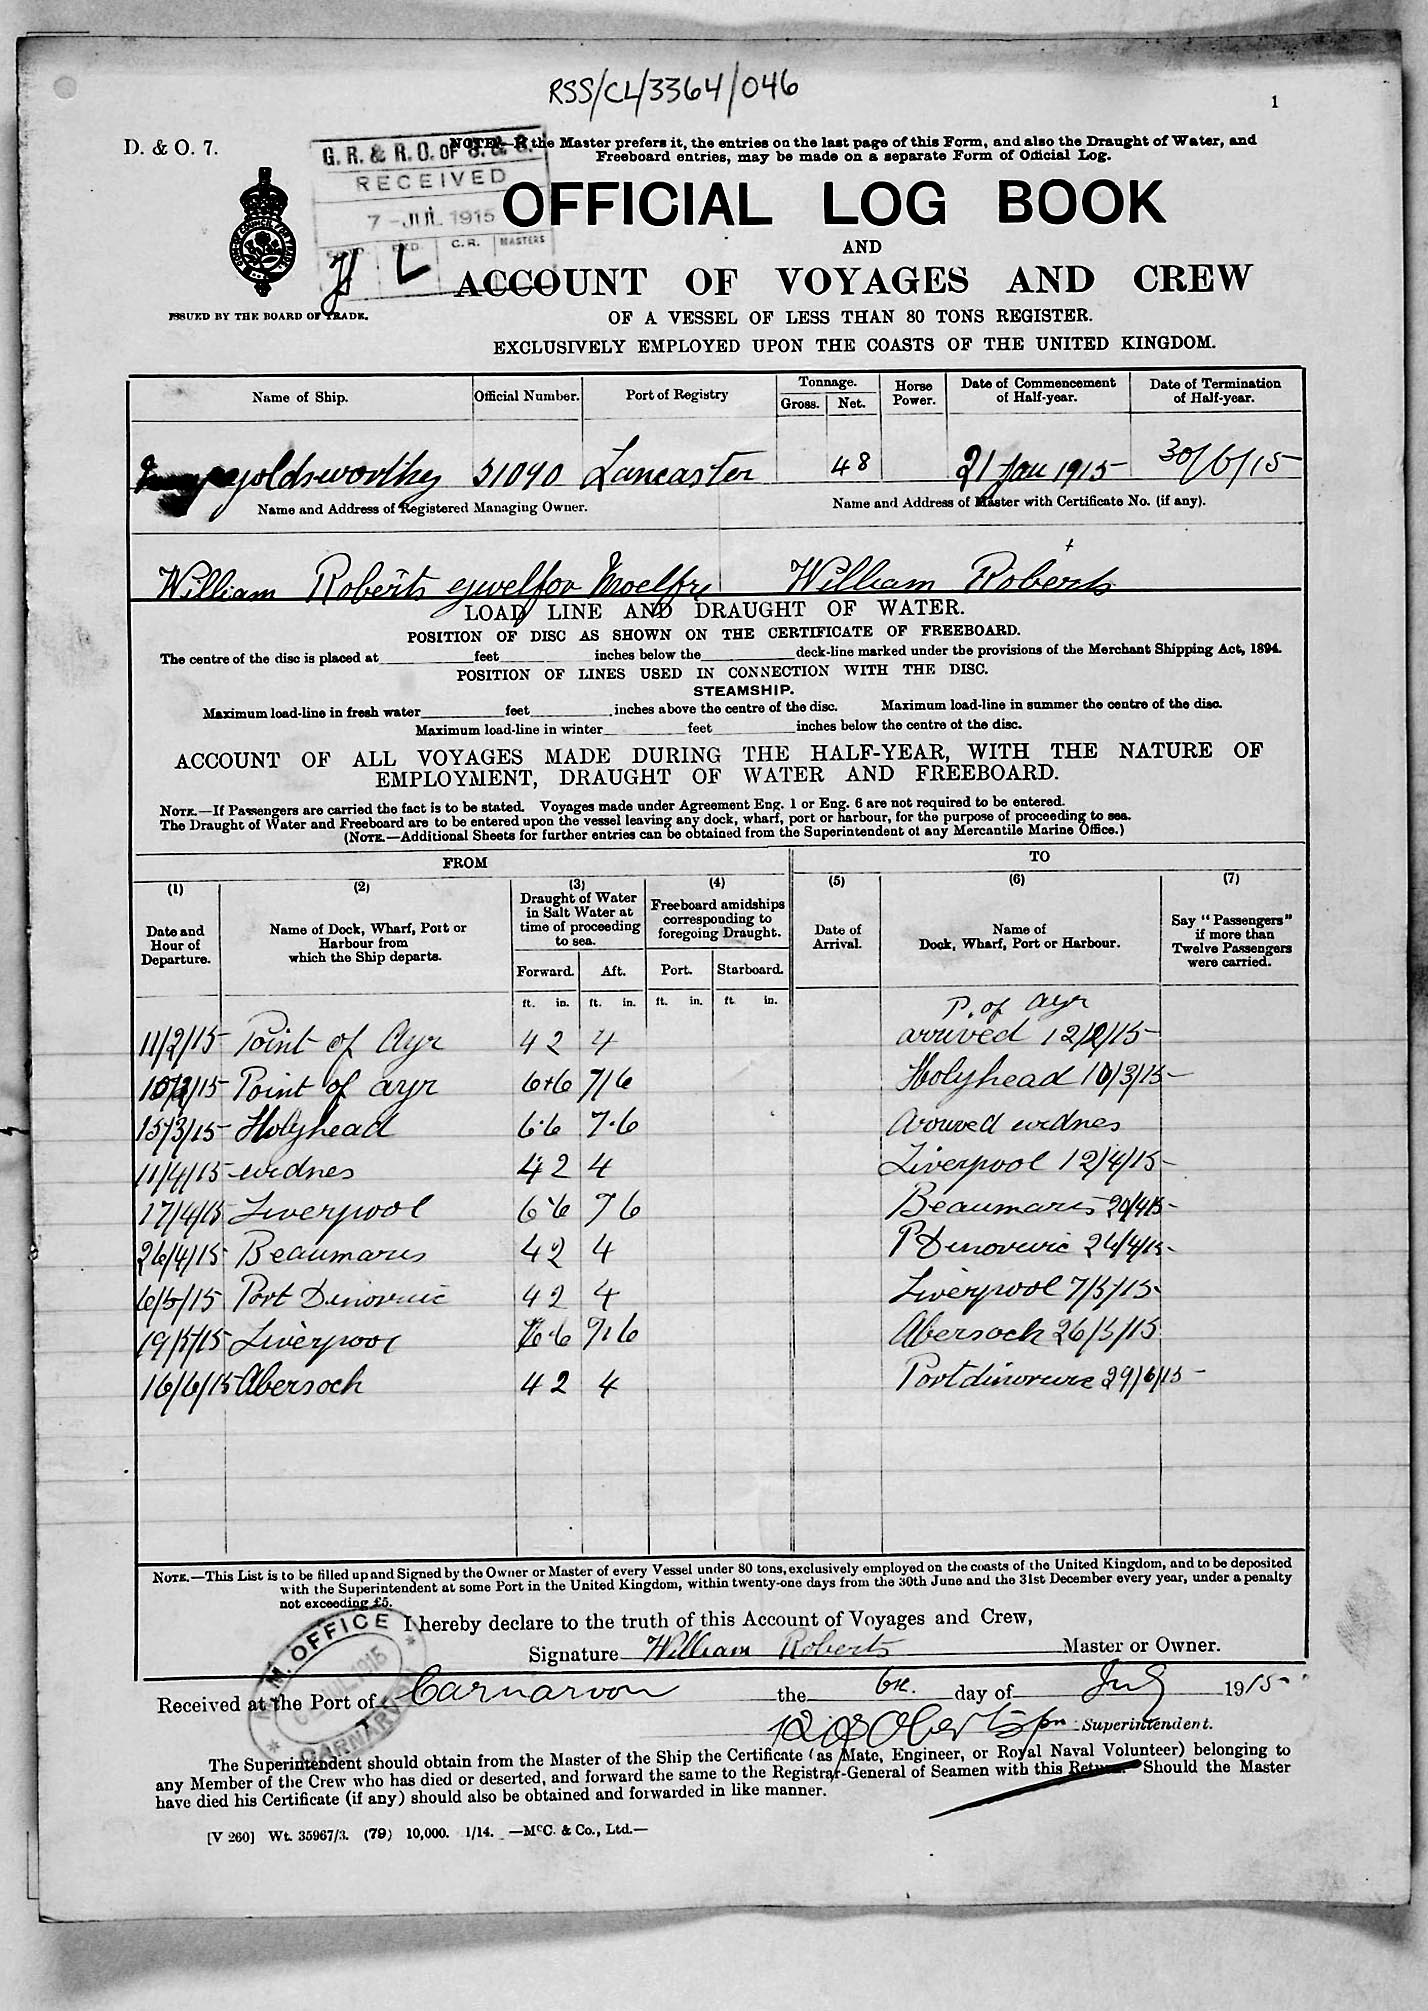 RSS/CL/3364/046
1
D. & O. 7.
NOTE.—If the Master prefers it, the entries on the last page of this Form, and also the Draught of Water, and
Freeboard entries, may be made on a separate Form of Official Log.
G. R. & R. O. OF S. & S.
RECEIVED
7 - JUL 1915
EXD. C. R. MASTERS
L
OFFICIAL LOG BOOK
AND
ACCOUNT OF VOYAGES AND CREW
ISSUED BY THE BOARD OF TRADE.
OF A VESSEL OF LESS THAN 80 TONS REGISTER.
EXCLUSIVELY EMPLOYED UPON THE COASTS OF THE UNITED KINGDOM.
Name of Ship. Official Number. Port of Registry Tonnage. Gross. Net. Horse Power. Date of Commencement of Half-year. Date of Termination of Half-year.
goldsworthy 51090 Lancaster 48 21 Jan 1915 30/6/15
Name and Address of Registered Managing Owner. Name and Address of Master with Certificate No. (if any).
William Roberts Moelfre William Roberts
LOAD LINE AND DRAUGHT OF WATER.
POSITION OF DISC AS SHOWN ON THE CERTIFICATE OF FREEBOARD.
The centre of the disc is placed at feet inches below the deck-line marked under the provisions of the Merchant Shipping Act, 1894.
POSITION OF LINES USED IN CONNECTION WITH THE DISC.
STEAMSHIP.
Maximum load-line in fresh water feet inches above the centre of the disc. Maximum load-line in summer the centre of the disc.
Maximum load-line in winter feet inches below the centre of the disc.
ACCOUNT OF ALL VOYAGES MADE DURING THE HALF-YEAR, WITH THE NATURE OF
EMPLOYMENT, DRAUGHT OF WATER AND FREEBOARD.
NOTE.—If Passengers are carried the fact is to be stated. Voyages made under Agreement Eng. 1 or Eng. 6 are not required to be entered.
The Draught of Water and Freeboard are to be entered upon the vessel leaving any dock, wharf, port or harbour, for the purpose of proceeding to sea.
(NOTE.—Additional Sheets for further entries can be obtained from the Superintendent of any Mercantile Marine Office.)
FROM TO
(1) (2) (3) (4) (5) (6) (7)
Date and Hour of Departure. Name of Dock, Wharf, Port or Harbour from which the Ship departs. Draught of Water in Salt Water at time of proceeding to sea. Freeboard amidships corresponding to foregoing Draught. Date of Arrival. Name of Dock, Wharf, Port or Harbour. Say "Passengers" if more than Twelve Passengers were carried.
Forward. Aft. Port. Starboard.
ft. in. ft. in. ft. in. ft. in.
P. of Ayr
11/2/15 Point of Ayr 4 2 4 arrived 12/2/15
10/3/15 Point of ayr 6+6 7/6 Holyhead 10/3/15
15/3/15 Holyhead 6·6 7·6 Arouved widnes
11/4/15 widnes 4 2 4 Liverpool 12/4/15
17/4/15 Liverpool 6·6 7 6 Beaumaris 20/4/15
26/4/15 Beaumaris 4 2 4 P Dinorwic 26/4/15
6/5/15 Port Dinorwic 4 2 4 Liverpool 7/5/15
19/5/15 Liverpool 6·6 7·6 Abersoch 26/5/15
16/6/15 Abersoch 4 2 4 Portdinorwic 29/6/15
NOTE.—This List is to be filled up and Signed by the Owner or Master of every Vessel under 80 tons, exclusively employed on the coasts of the United Kingdom, and to be deposited
with the Superintendent at some Port in the United Kingdom, within twenty-one days from the 30th June and the 31st December every year, under a penalty
not exceeding £5.
I hereby declare to the truth of this Account of Voyages and Crew,
Signature William Roberts Master or Owner.
M. M. OFFICE
CARNARVON
Received at the Port of Carnarvon the 6th. day of July 1915
Superintendent.
The Superintendent should obtain from the Master of the Ship the Certificate (as Mate, Engineer, or Royal Naval Volunteer) belonging to
any Member of the Crew who has died or deserted, and forward the same to the Registrar-General of Seamen with this Return. Should the Master
have died his Certificate (if any) should also be obtained and forwarded in like manner.
[V 260] Wt. 35967/3. (79) 10,000. 1/14. —McC. & Co., Ltd.—